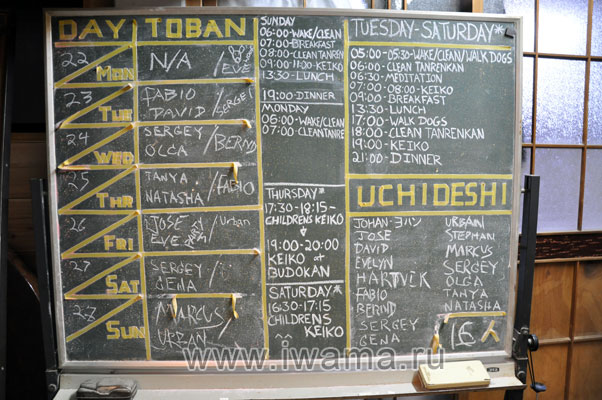 DAY TOBAN
22 MON N/A /
23 TUE FABIO DAVID / SERGEI
24 WED SERGEY OLGA / BERND
25 THR TANYA NATASHA / FABIO
26 FRI JOSE EVE / Urban
27 SAT SERGEY GENA /
27 SUN MARCUS URBAN /
SUNDAY
06:00-WAKE/CLEAN
07:00-BREAKFAST
08:00-CLEAN TANREN
09:00-11:00-KEIKO
13:30-LUNCH
19:00-DINNER
MONDAY
06:00-WAKE/CLEAN
07:00-CLEANTANRE
THURSDAY*
17:30-18:15-
CHILDRENS KEIKO
&
19:00-20:00
KEIKO @
BUDOKAN
SATURDAY*
16:30-17:15
CHILDRENS
KEIKO
^^
TUESDAY-SATURDAY*
05:00-05:30-WAKE/CLEAN/WALK DOGS
06:00-CLEAN TANRENKAN
06:30-MEDITATION
07:00-08:00-KEIKO
09:00-BREAKFAST
13:30-LUNCH
17:00-WALK DOGS
18:00-CLEAN TANRENKAN
19:00-KEIKO
21:00-DINNER
UCHIDESHI
JOHAN-ヨハン URBAIN
JOSE STEPHAN
DAVID MARCUS
EVELYN SERGEY
HARTVIK OLGA
FABIO TANYA
BERND NATASHA
SERGEY
GENA 人
www.iwama.ru